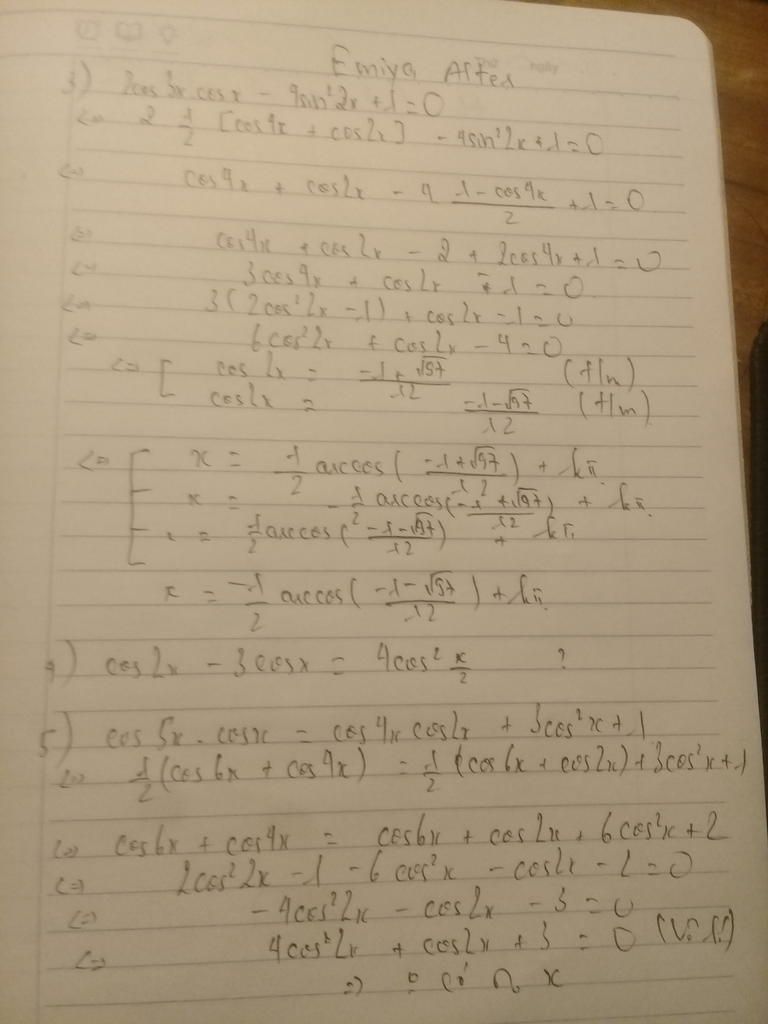 Emiya After
3) 2cos3x.cosx - 4sin²2x + 1 = 0
<=> 2 1/2 [cos4x + cos2x] - 4sin²2x + 1 = 0
<=> cos4x + cos2x - 4 (1 - cos4x)/2 + 1 = 0
<=> cos4x + cos2x - 2 + 2cos4x + 1 = 0
<=> 3cos4x + cos2x - 1 = 0
<=> 3(2cos²2x - 1) + cos2x - 1 = 0
<=> 6cos²2x + cos2x - 4 = 0
<=> [ cos2x = (-1+√97)/12 (t/m)
cos2x = (-1-√97)/12 (t/m)
<=> [ x = 1/2 arccos((-1+√97)/12) + kπ
x = -1/2 arccos((-1+√97)/12) + kπ
x = 1/2 arccos((-1-√97)/12) + kπ
x = -1/2 arccos((-1-√97)/12) + kπ
4) cos2x - 3cosx = 4cos² x/2 ?
5) cos5x.cosx = cos4x cos2x + 3cos²x + 1
<=> 1/2 (cos6x + cos4x) = 1/2 (cos6x + cos2x) + 3cos²x + 1
<=> cos6x + cos4x = cos6x + cos2x + 6cos²x + 2
<=> 2cos²2x - 1 - 6cos²x - cos2x - 2 = 0
<=> -4cos²2x - cos2x - 3 = 0
<=> 4cos²2x + cos2x + 3 = 0
=> có x